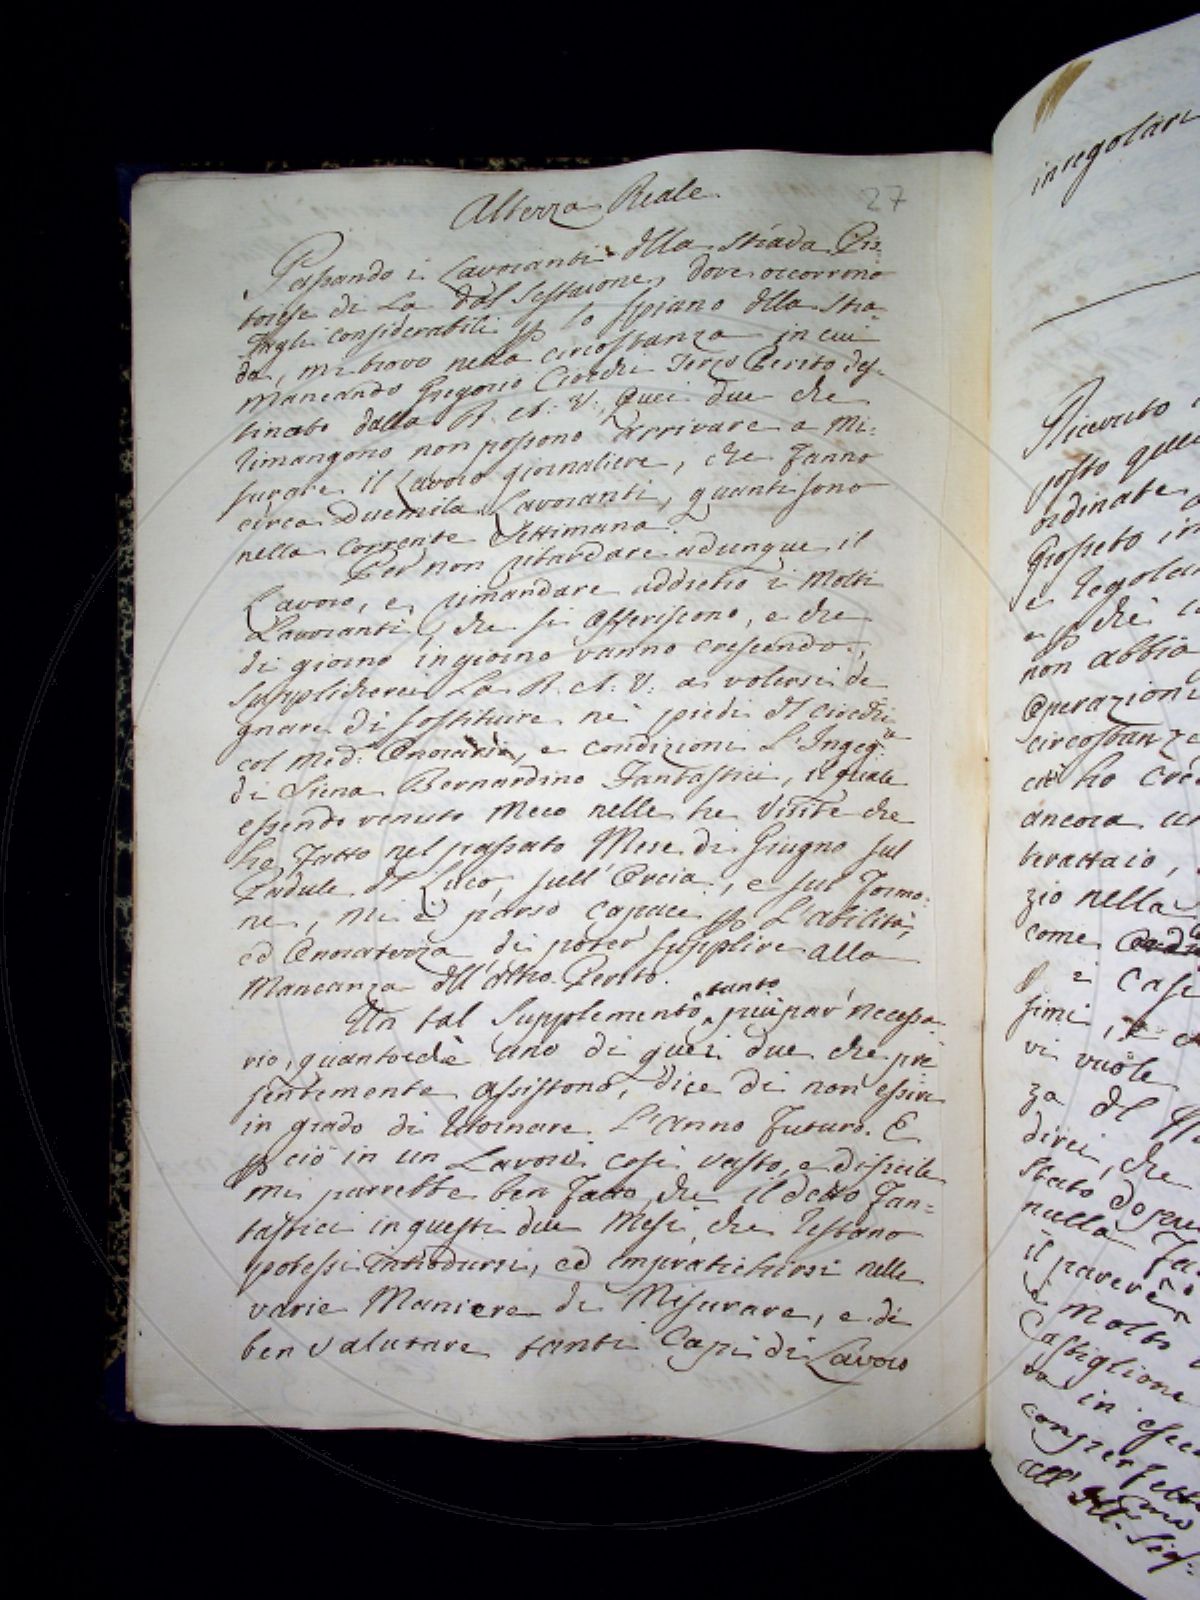 27
Altezza Reale
Passando i Lavoranti dlla strada Pis:
toiese di La dal Sestaione, dove occorrono
Tagli considerabili p lo spiano dlla stra:
da, mi trovo nella circostanza in cui
mancando Gregorio Ciocchi Terzo Perito des:
tinato dalla R. A: V:, quei due che
rimangono non possono arrivare a mi:
surare il Lavoro giornaliere, che fanno
circa Duemila Lavoranti, quanti sono
nella corrente Settimana.
Per non ritardare adunque il
Lavoro, e rimandare addietro i molti
Lavoranti, che si offeriscono, e che
di giorno in giorno vanno crescendo,
supplicherei La R. A: V: a volersi de
gnare di sostituire ne' piedi dl Ciocchi
col med: Onorario, e condizioni L'Ingeg:
di Siena Bernardino Fantastici, il quale
essendo venuto meco nelle tre Visite che
ho fatto nel passato Mese di Giugno sul
Padule dl Luco, sull'Orcia, e sul Formo:
ne, mi è parso capace p L'abilità,
ed Onoratezza di poter supplire alla
Mancanza dll'altro Perito.
Un tal Supplemento tanto più par necessa
rio, quantochè uno di quei due che pre
sentemente assistono, dice di non essere
in grado di ritornare L'Anno futuro. E
p ciò in un Lavoro così vasto, e dificile
mi parrebbe ben fatto, che il detto Fan:
tastici in questi due Mesi, che restano
potessi introdursi, ed impratichirsi nelle
varie Maniere di Misurare, e di
ben valutare tanti Capi di Lavoro
irregolari
Ricevuto
posto
ordinate
Grosseto in
e regola
e p che
non abbia
Operazioni
circostanze
ho
ancora un
zio nella
come
p i casi
simi,
vi vuole
za dl
direi, che
stato
nulla
il parere
e molto
Castiglione
in